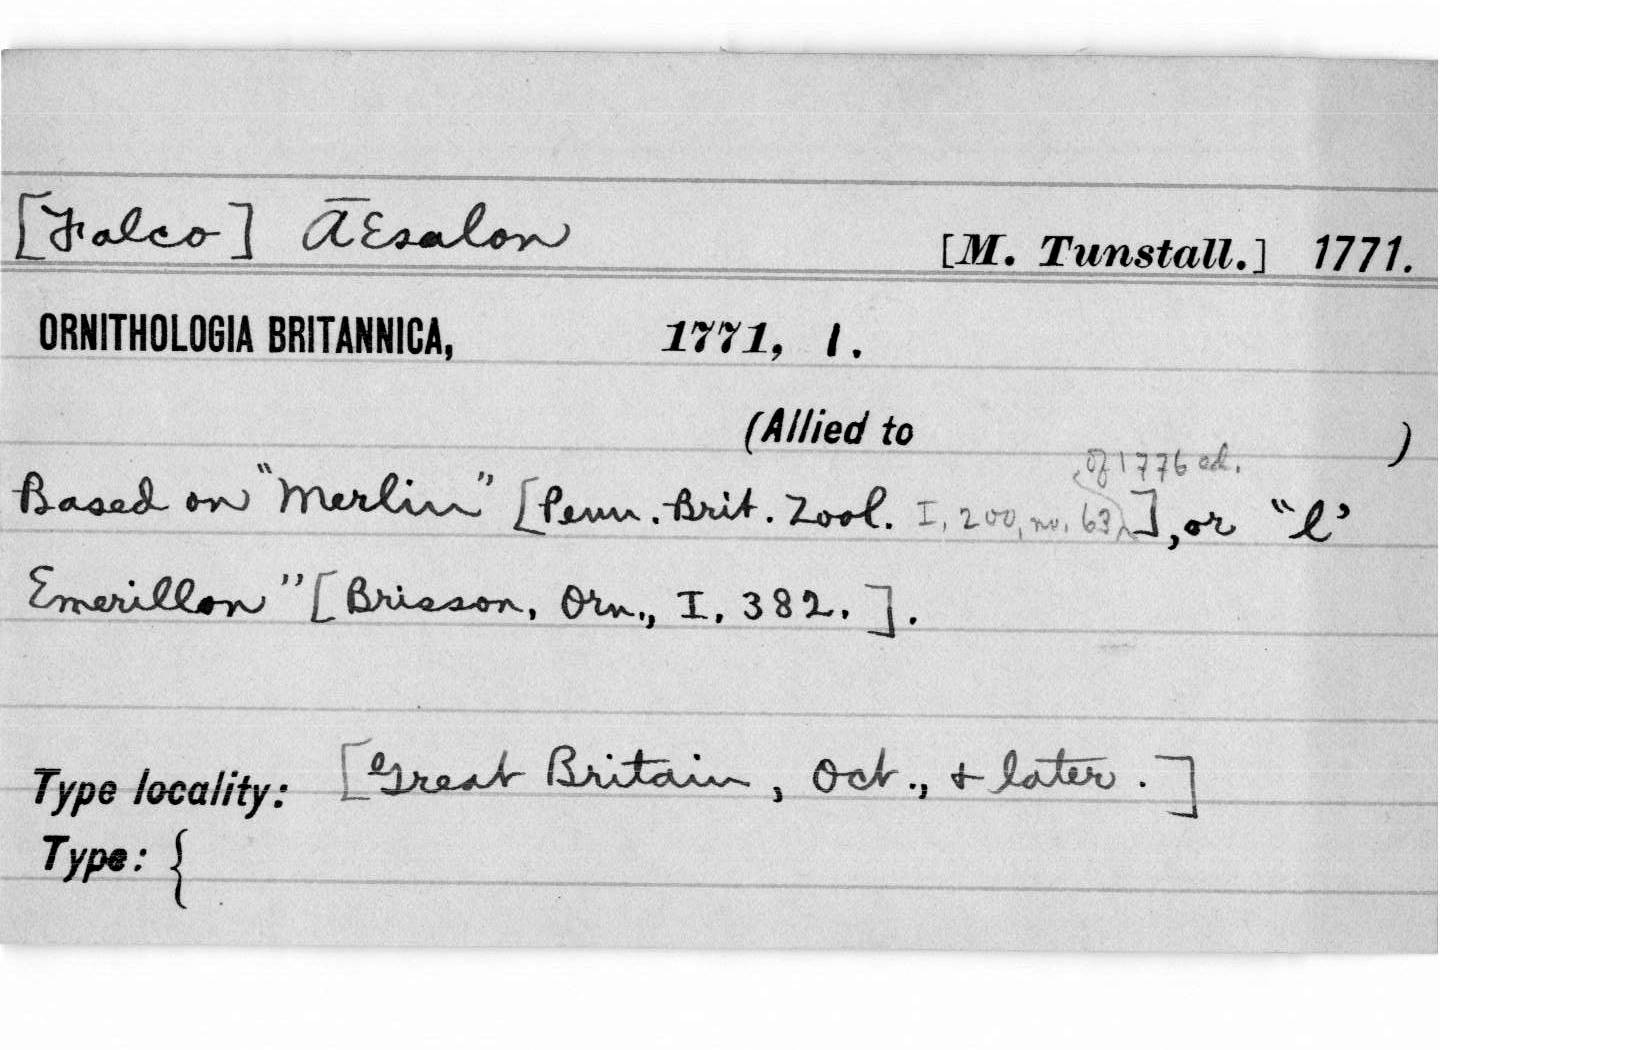 [Falco] ĀEsalon [M. Tunstall.] 1771.
ORNITHOLOGIA BRITANNICA, 1771, 1.
(Allied to )
of 1776 ed.
Based on "Merlin" [Penn. Brit. Zool. I, 200, no. 63], or "l'
Emerillon" [Brisson, Orn., I, 382.].
Type locality: [Great Britain, Oct., + later.]
Type: {